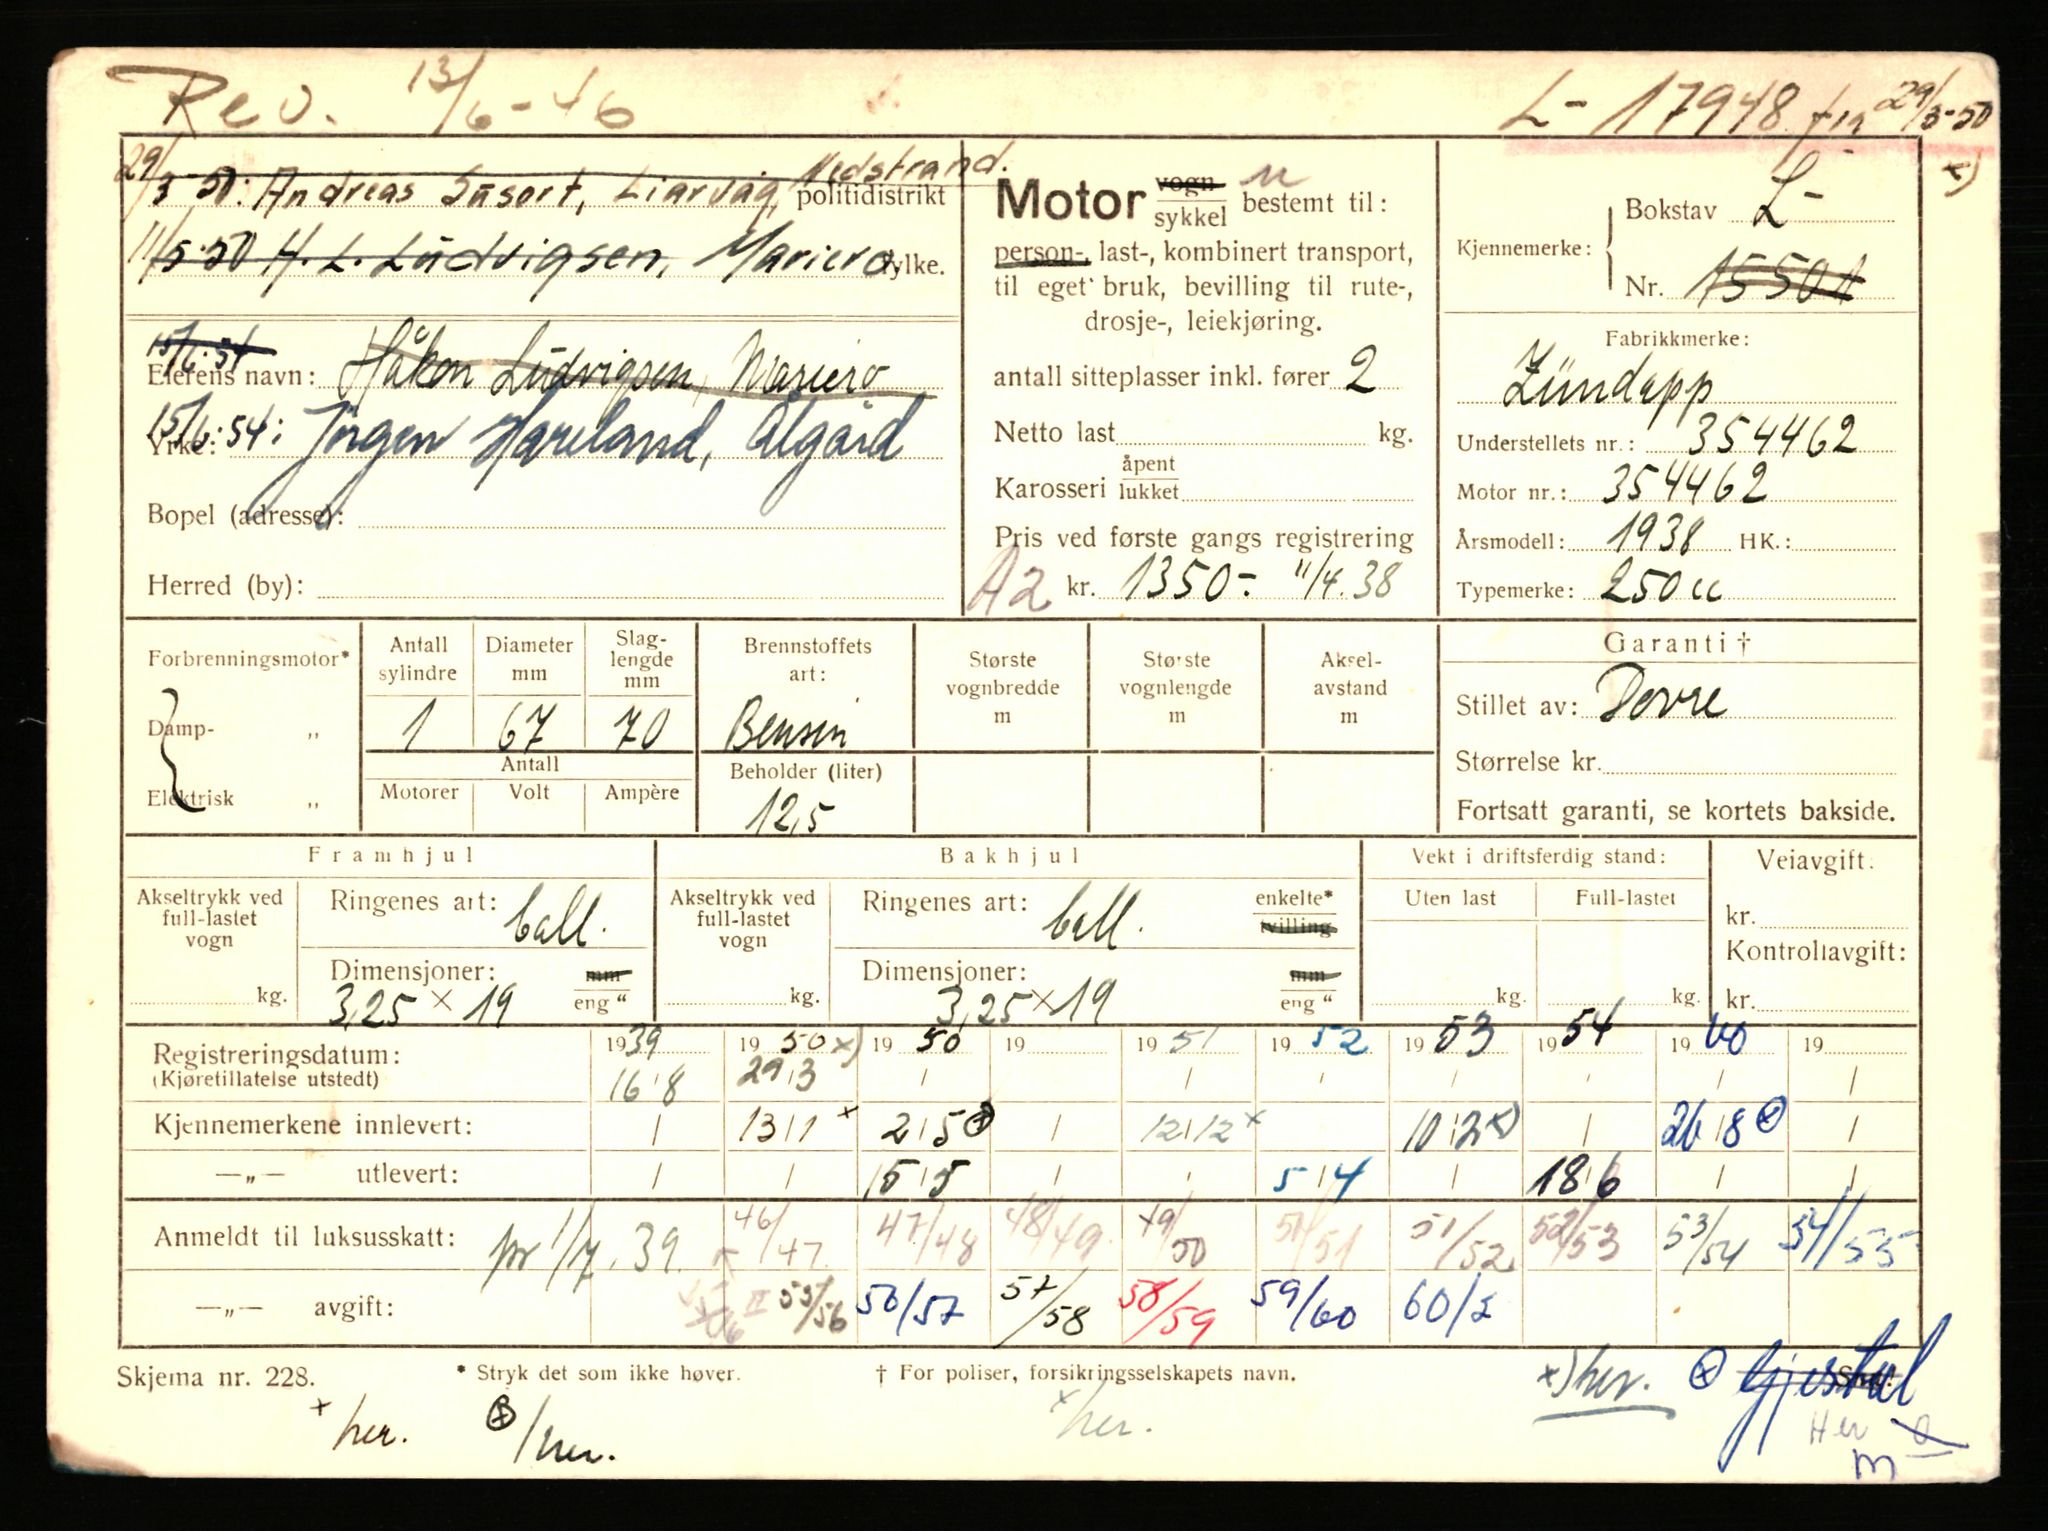 Rev. 13/6-46
L- 17948 fra 29/3-50
x)
29/3-50: Andreas Susort, Liarvåg, Nedstrand. politidistrikt
11/5-50 H. L. Ludvigsen, Mariero fylke.
15/6-54
Eierens navn: Håkon Ludvigsen, Mariero
15/6-54: Jørgen Hareland, Ålgård
Yrke:
Bopel (adresse):
Herred (by):
Motor vogn sykkel bestemt til:
person-, last-, kombinert transport,
til eget bruk, bevilling til rute-,
drosje-, leiekjøring.
antall sitteplasser inkl. fører 2
Netto last kg.
Karosseri åpent lukket
Pris ved første gangs registrering
A2 kr. 1350.- 11/4.38
Kjennemerke: Bokstav L-
Nr. 15501
Fabrikkmerke:
Zündapp
Understellets nr.: 354462
Motor nr.: 354462
Årsmodell: 1938 HK.:
Typemerke: 250 cc
Forbrenningsmotor*
Damp- „
Elektrisk „
Antall sylindre
Diameter mm
Slaglengde mm
1 67 70
Antall
Motorer Volt Ampère
Brennstoffets art:
Bensin
Beholder (liter)
12,5
Største vognbredde m
Største vognlengde m
Akselavstand m
Garanti †
Stillet av: Dovre
Størrelse kr.
Fortsatt garanti, se kortets bakside.
Framhjul
Akseltrykk ved full-lastet vogn
kg.
Ringenes art: ball.
Dimensjoner: mm
3,25 × 19 eng "
Bakhjul
Akseltrykk ved full-lastet vogn
kg.
Ringenes art: ball. enkelte* tvilling
Dimensjoner: mm
3,25 × 19 eng "
Vekt i driftsferdig stand:
Uten last Full-lastet
kg. kg.
Veiavgift:
kr.
Kontrollavgift:
kr.
Registreringsdatum: 1939 1950 x) 1950 19 1951 1952 1953 1954 1960 19
(Kjøretillatelse utstedt) 16 8 29 3
Kjennemerkene innlevert: 13 1 x 2 5 ⊗ 12 12 x 10 2 x) 26 8 ⊗
—„— utlevert: 15 5 5 4 18 6
Anmeldt til luksusskatt: pr 1/7.39. 46/47 47/48 48/49 49/50 50/51 51/52 52/53 53/54 54/55
—„— avgift: II 55/56 56/57 57/58 58/59 59/60 60/
Skjema nr. 228.
* Stryk det som ikke høver.
† For poliser, forsikringsselskapets navn.
x her.
⊗ /her.
x her.
x) her.
⊗ Gjestal
Her